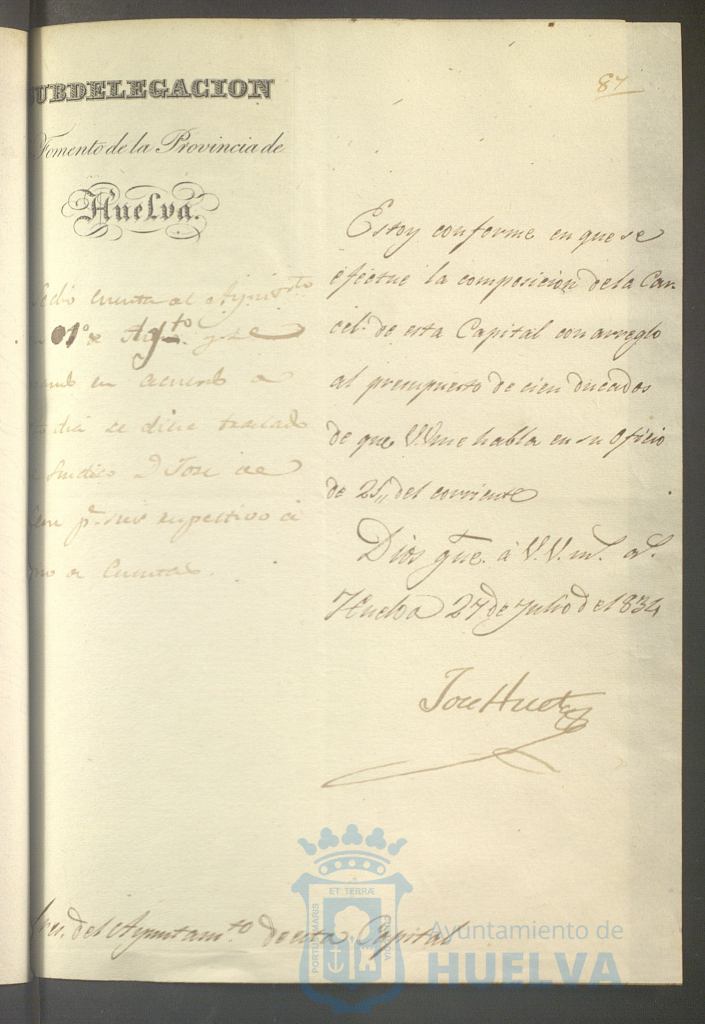 87
UBDELEGACION
Fomento de la Provincia de
Huelva.
Estoy conforme en que se
efectue la composicion de la Car-
cel. de esta Capital con arreglo
al presupuesto de cien ducados
de que V.V. me habla en su Oficio
de 25,, del corriente
Dios gue. á V.V. ms. as.
Huelva 27 de Julio de 1834
Jose Huet
cuenta al Ayunto
01º de Agto.
en acuerdo
dia se diese traslado
Sindico D Jose de
respectivo á
Cuentas.
res. del Ayuntamto. de esta Capital
PORTUS MARIS
ET TERRÆ
CUSTODIA
Ayuntamiento de
HUELVA